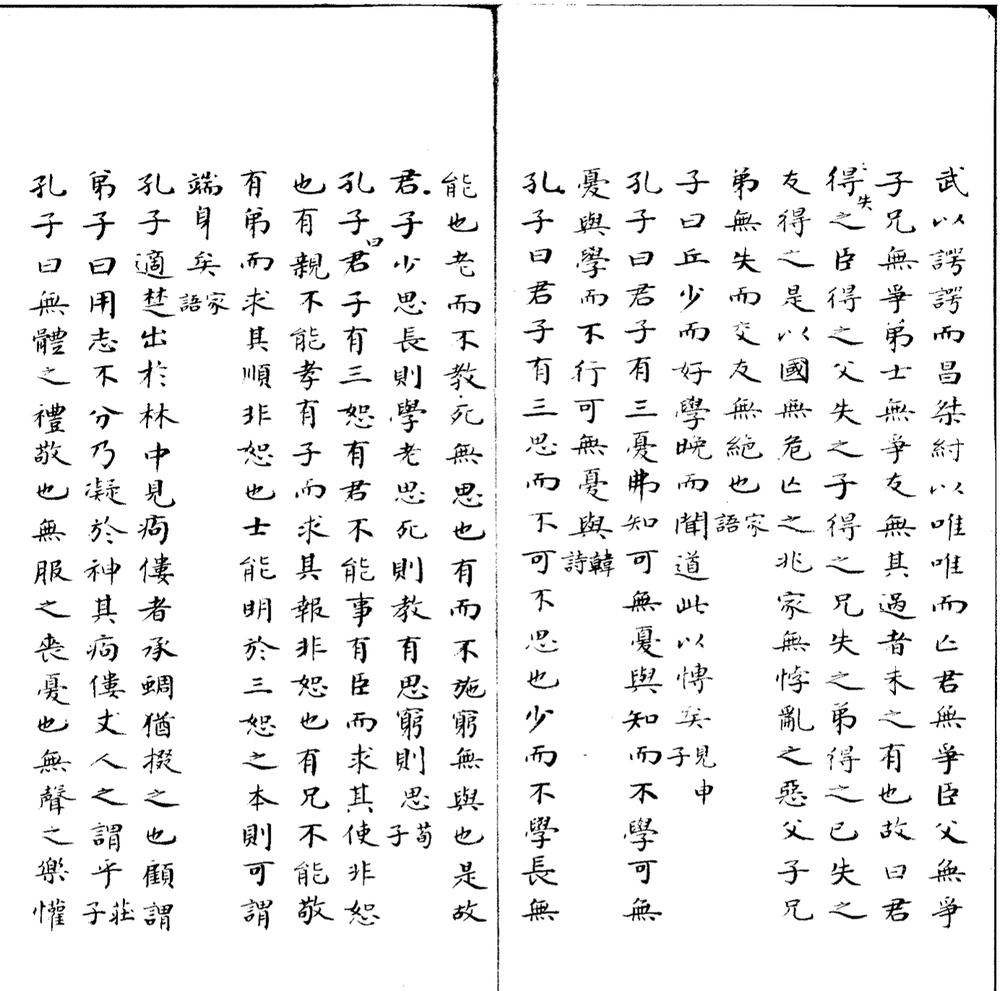 武以諤諤而昌桀紂以唯唯而亡君無爭臣父無爭
子兄無爭弟士無爭友無其過者未之有也故曰君
失
得之臣得之父失之子得之兄失之弟得之已失之
友得之是以國無危亡之兆家無悖亂之惡父子兄
弟無失而交友無絕也家語
子曰丘少而好學晚而聞道此以慱矣見申子
孔子曰君子有三憂弗知可無憂與知而不學可無
憂與學而不行可無憂與韓詩
孔子曰君子有三思而不可不思也少而不學長無
能也老而不教死無思也有而不施窮無與也是故
君子少思長則學老思死則教有思窮則思荀子
孔子曰君子有三恕有君不能事有臣而求其使非恕
也有親不能孝有子而求其報非恕也有兄不能敬
有弟而求其順非恕也士能明於三恕之本則可謂
端身矣家語
孔子適楚出於林中見痀僂者承蜩猶掇之也顧謂
弟子曰用志不分乃凝於神其痀僂丈人之謂乎莊子
孔子曰無體之禮敬也無服之喪憂也無聲之樂懽